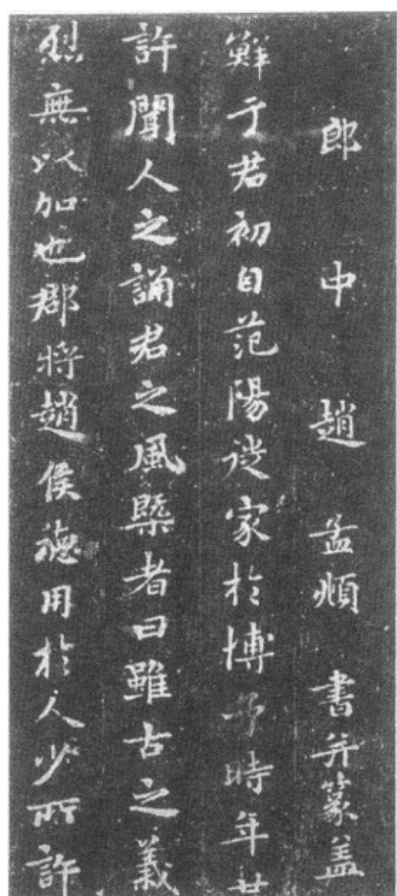 郎中趙孟頫書并篆蓋
鮮于君初自范陽徙家於博予時年廿
許聞人之誦君之風槩者曰雖古之義
烈無以加也郡將趙侯德用於人少所許